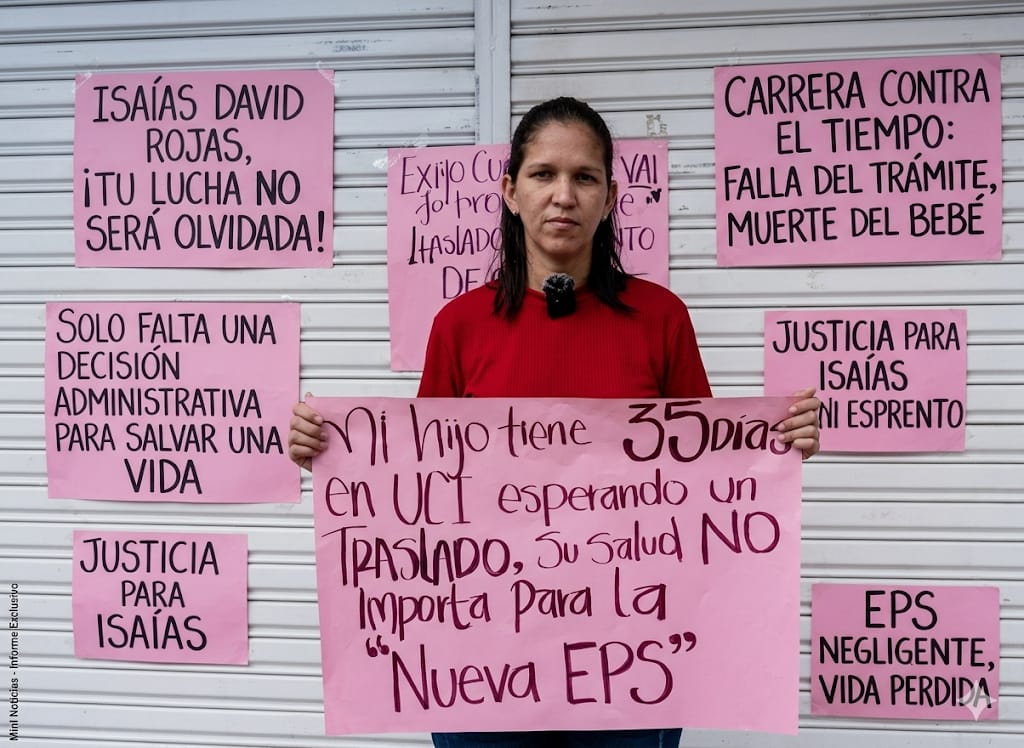 ISAÍAS DAVID
ROJAS,
¡TU LUCHA NO
SERÁ OLVIDADA!
Exijo
VAI
DE
CARRERA CONTRA
EL TIEMPO:
FALLA DEL TRÁMITE,
MUERTE DEL BEBÉ
SOLO FALTA UNA
DECISIÓN
ADMINISTRATIVA
PARA SALVAR UNA
VIDA
JUSTICIA PARA
ISAÍAS
NI ESPRENTO
Mi hijo tiene 35 Días
en UCI esperando un
TRASLADO, Su Salud NO
Importa Para la
"Nueva EPS"
JUSTICIA
PARA
ISAÍAS
EPS
NEGLIGENTE,
VIDA PERDIDA
Mini Noticias - Informe Exclusivo